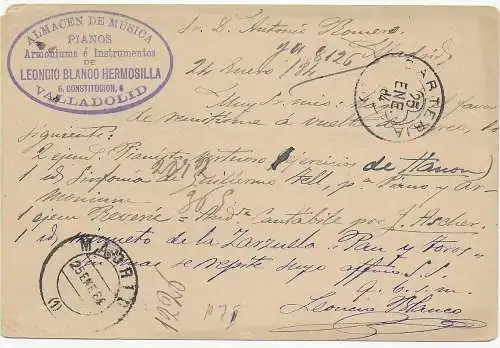 ALMACEN DE MÚSICA
PIANOS
Armoniums é Instrumentos
DE
LEONCIO BLANCO HERMOSILLA
6, CONSTITUCION, 6
VALLADOLID
Sr. D. Antonio Romero
Madrid
24 Enero /84
CARTERIA
25 ENE 84
Muy Sr. mio:
de remitirme á vuelta
siguiente:
2 ejem. Pianista virtuoso Ejercicios de Hanon
1 id Sinfonia de Guillermo Tell, pa. Piano y Ar-
monium
1 ejem Reverie = Andte Cantabile por J. Ascher.
1 id. de la Zarzuela "Pan y Toros"
mas se repite suyo affmo S. S.
q. b. s. m.
Leoncio Blanco
MADRID
25 ENE 84
(1)
1225